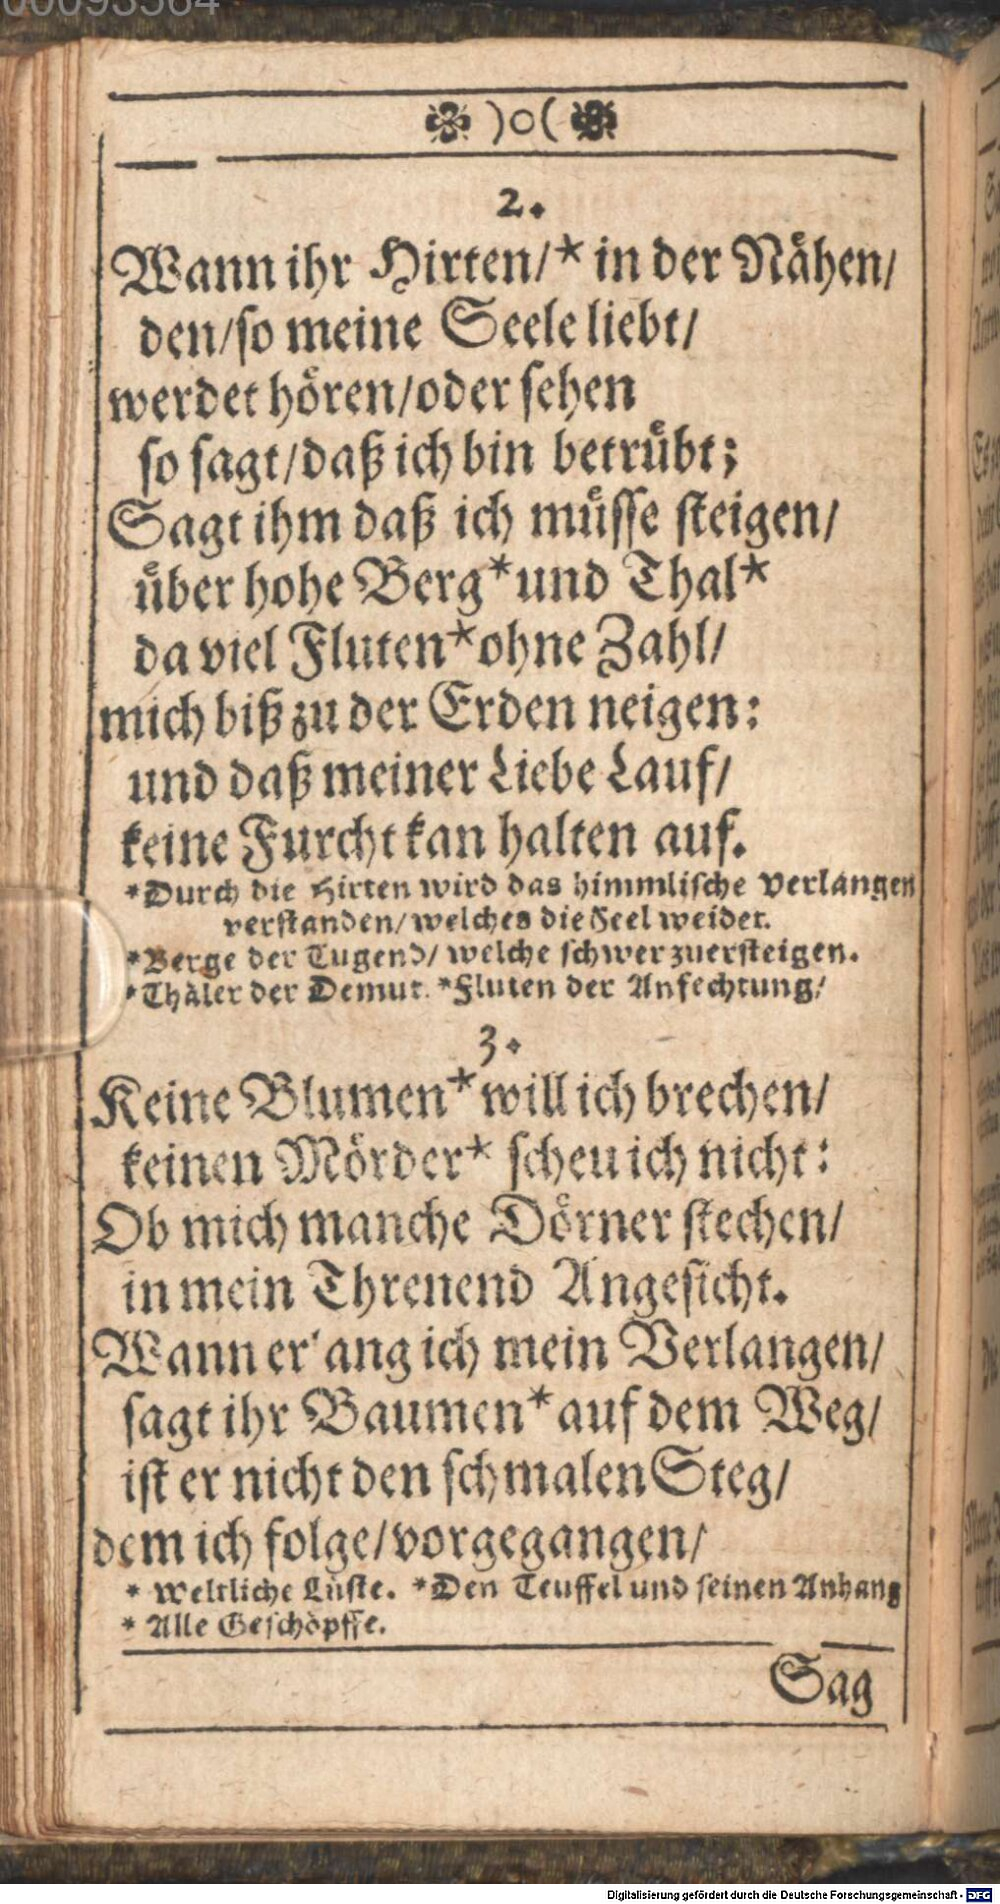 00093564
)o(
2.
Wann ihr Hirten/* in der Nåhen/
den/so meine Seele liebt/
werdet hoͤren/oder sehen
so sagt/daß ich bin betruͤbt;
Sagt ihm daß ich muͤsse steigen/
uͤber hohe Berg* und Thal*
da viel Fluten* ohne Zahl/
mich biß zu der Erden neigen:
und daß meiner Liebe Lauf/
keine Furcht kan halten auf.
*Durch die Hirten wird das himmlische Verlangen
verstanden/ welches die Seel weidet.
*Berge der Tugend/ welche schwer zuersteigen.
*Thåler der Demut. *Fluten der Anfechtung/
3.
Keine Blumen* will ich brechen/
keinen Moͤrder* scheu ich nicht:
Ob mich manche Doͤrner stechen/
in mein Threnend Angesicht.
Wann er'ang ich mein Verlangen/
sagt ihr Baumen* auf dem Weg/
ist er nicht den schmalen Steg/
dem ich folge/vorgegangen/
* Weltliche Luͤste. *Den Teuffel und seinen Anhang
* Alle Geschoͤpffe.
Sag
Digitalisierung gefördert durch die Deutsche Forschungsgemeinschaft - DFG